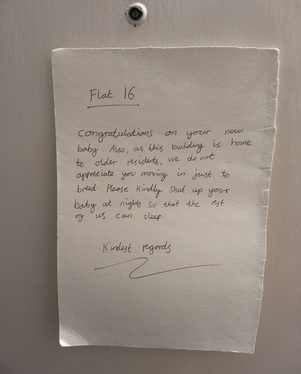 Flat 16
Congratulations on your new
baby. Also, as this building is home
to older residents, we do not
appreciate you moving in just to
breed. Please kindly shut up your
baby at nights so that the rest
of us can sleep.
Kindest regards